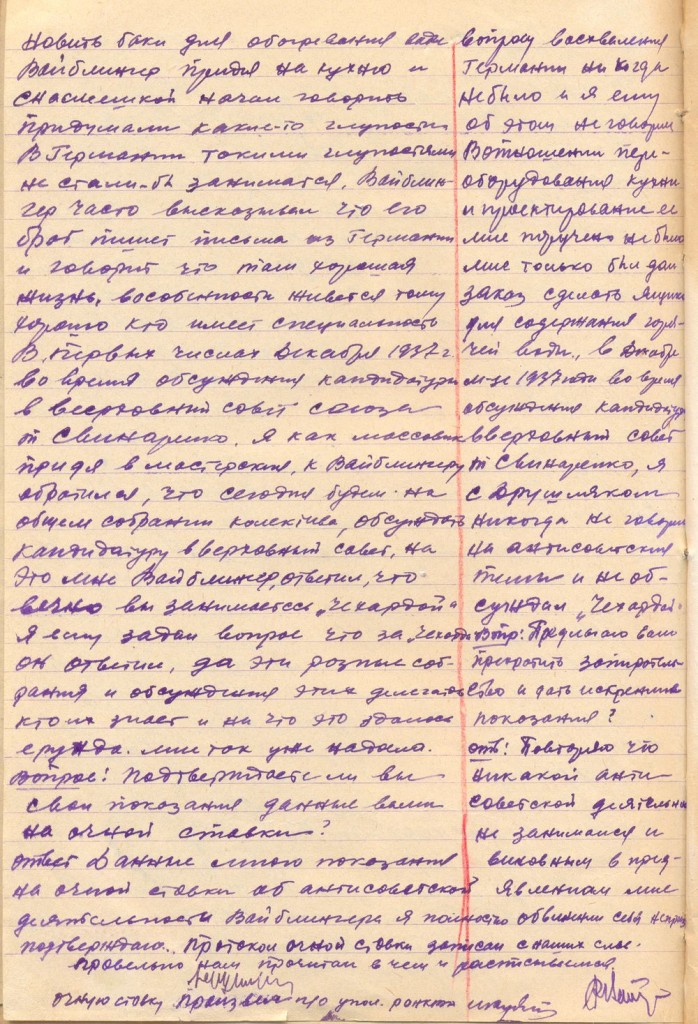 новить баки для обогревания
Вайблингер придя на кухню и
с насмешкой начал говорить
придумали какие-то глупости
В Германии такими глупостями
не стали-бы заниматся. Вайблин-
гер часто высказывал что его
брат пишет письма из Германии
и говорит что там хорошая
жизнь, вособенности живется тому
хорошо кто имеет специальность
В первых числах декабря 1937 г.
во время обсуждения кандидатуры
в верховний совет союза
т Свинаренко. Я как массовик
придя в мастерския, к Вайблингеру
обратился, что сегодня будем на
общем собрании колектива, обсуждать
кандидатуру в верховний совет, на
это мне Вайблингер, ответил, что
вечно вы занимаетесь „Чехардой"
Я ему задал вопрос что за „чехарда"
он ответил, да эти розные соб-
рания и обсуждения этих делегатов
кто их знает и на что это сдалось
ерунда. мне так уже надала.
Вопрос: Подтверждаете ли вы
свои показания данные вами
на очной ставки?
ответ Данные мною показания
на очной ставки об антисоветской
деятельности Вайблингера я полностю
подтверждаю.
вопросу восхваления
Германии никогда
не было и я ему
об этом не говорил
Вотношении пере-
оборудования кухни
и проектирование ее
мне поручено не было
мне только был дан
заказ сделать ящики
для содержания горя-
чей воды, в декабре
м-це 1937 года во время
обсуждения кандидатуры
в верховний совет
т Свинаренко, я
с Друшляком
никогда не говорил
на антисоветския
темы и не об-
суждал „Чехардой"
Вопр: Предлагаю вам
прекратить запиратель-
ство и дать искренние
показания?
отв: Повторяю что
никакой анти-
советской деятельн
не занимался и
виновным в пред-
явленном мне
обвинении себя не призн
Протокол очной ставки записан с наших слов.
провельно нам прочитан в чем и расписываемся.
очную ставку произвел